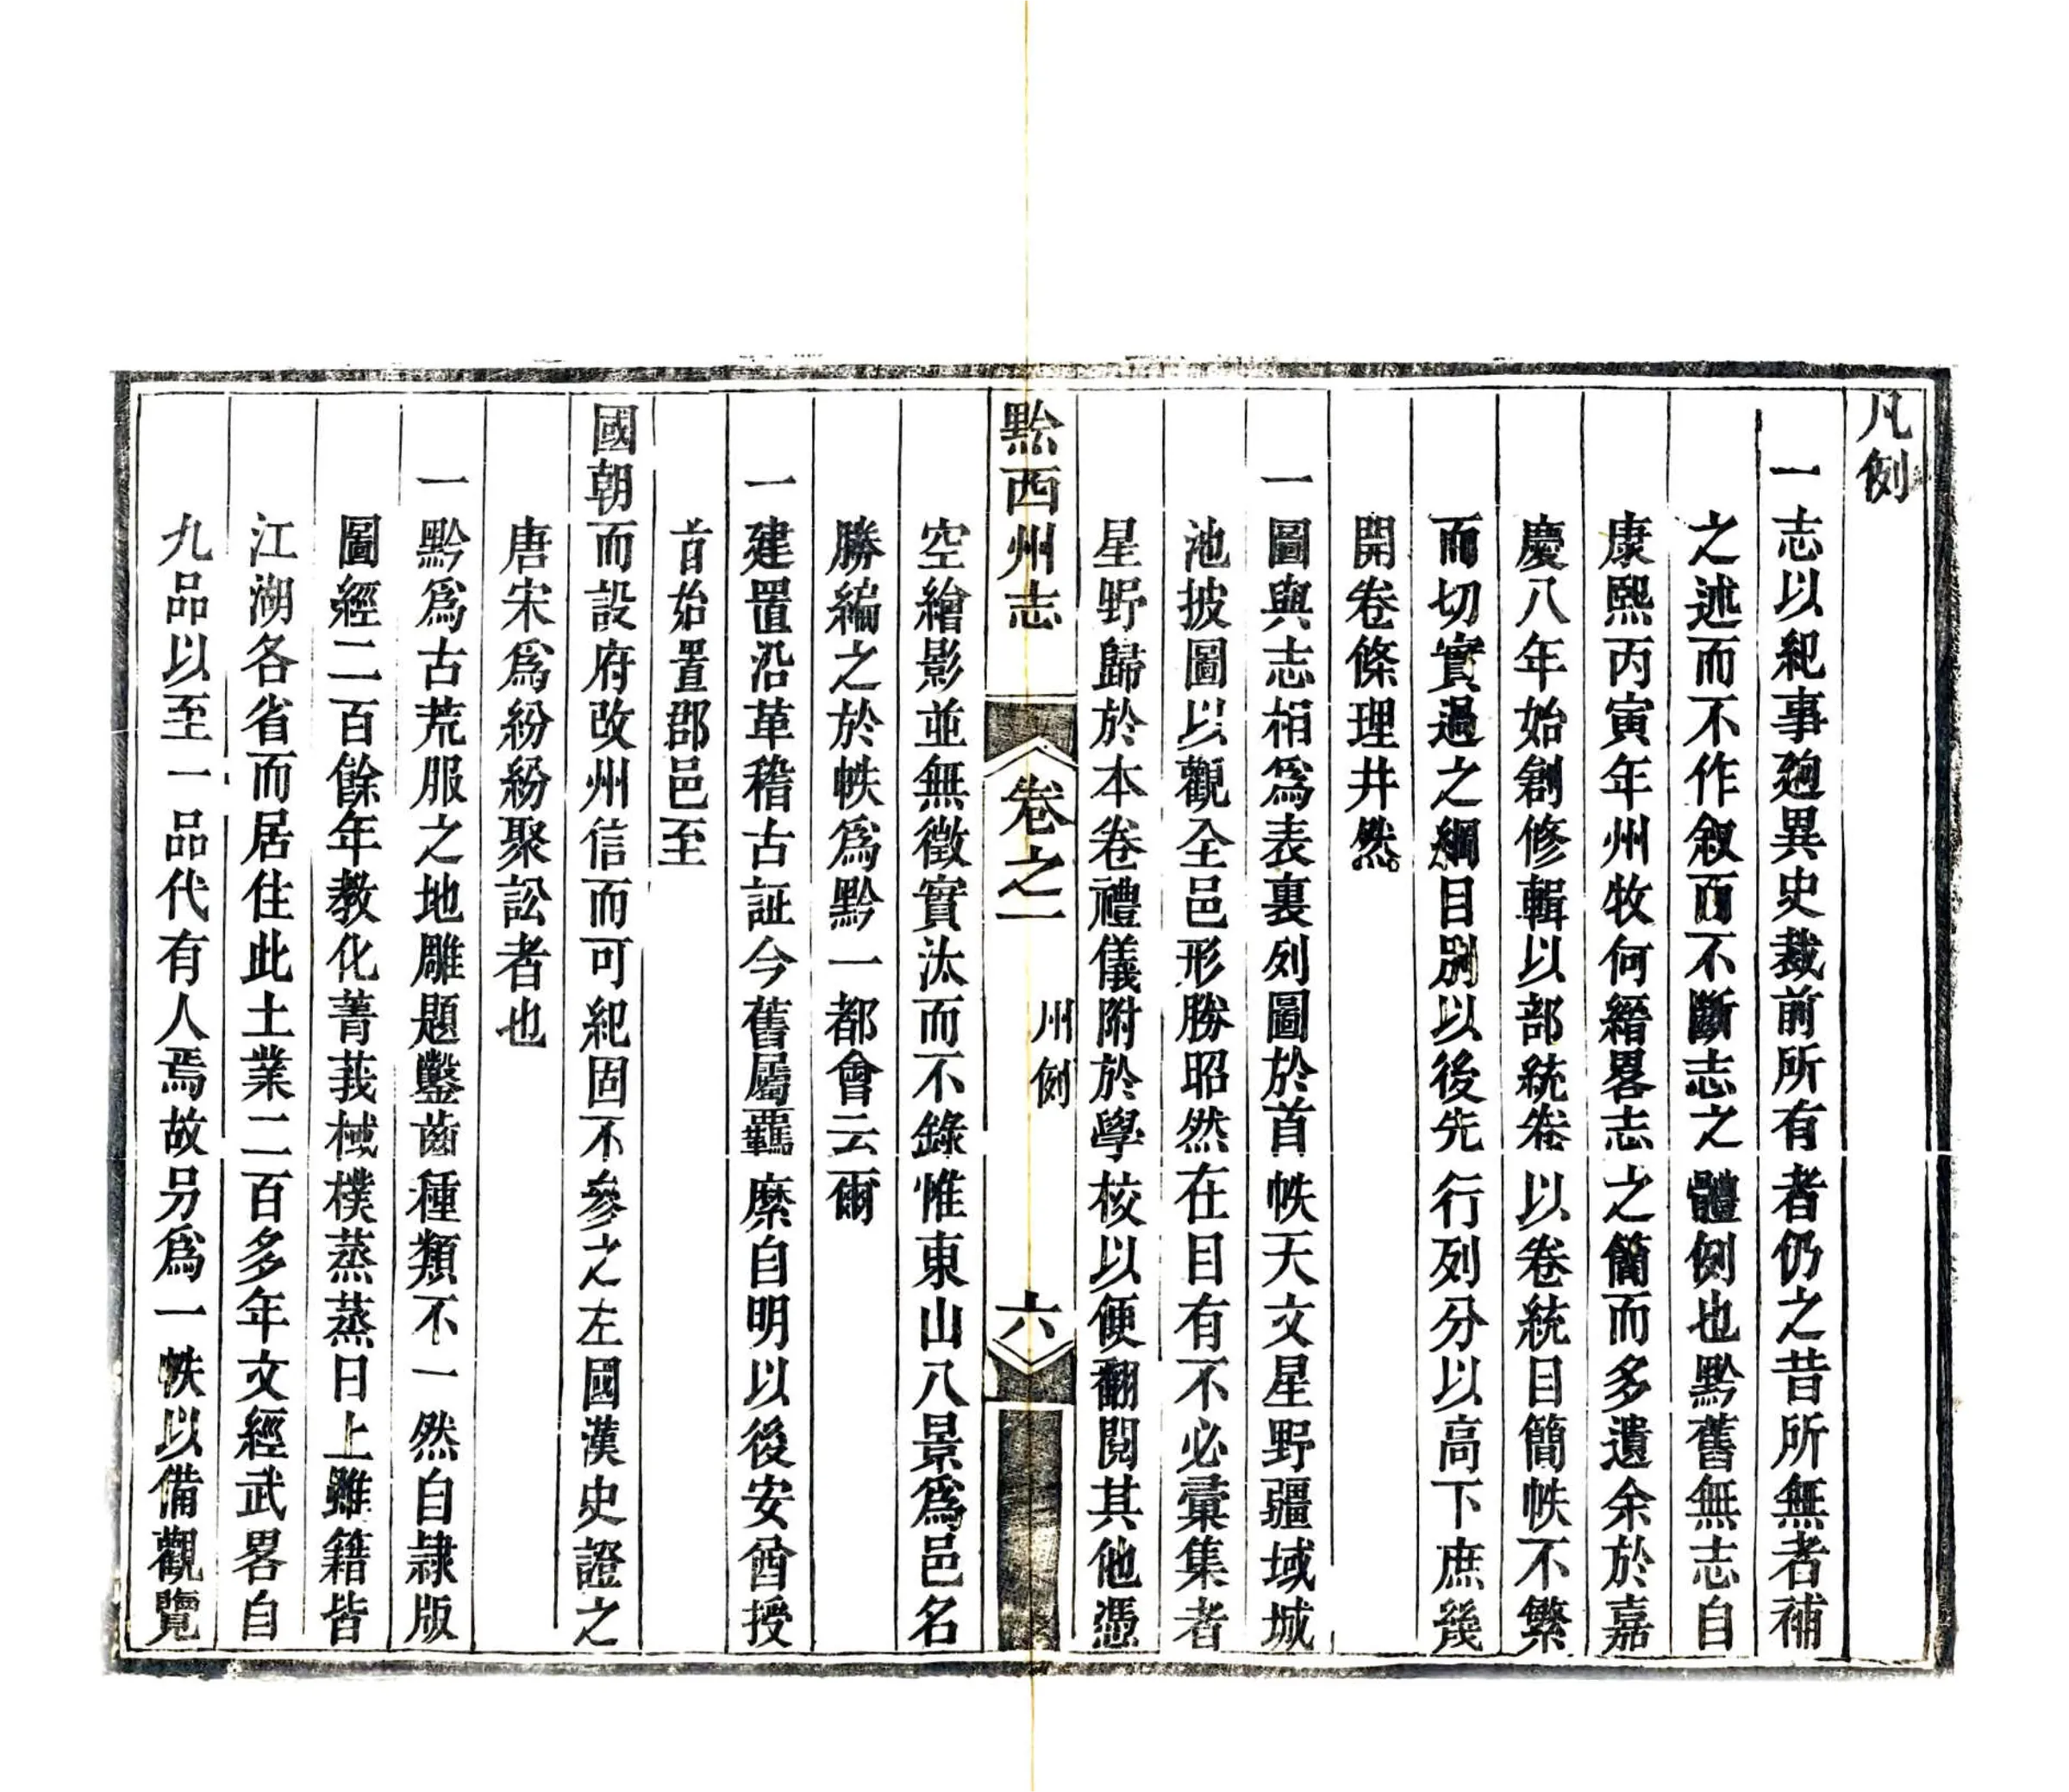 凡例
一志以紀事逈異史裁前所有者仍之昔所無者補
之述而不作叙而不斷志之體例也黔舊無志自
康熙丙寅年州牧何縉畧志之簡而多遺余於嘉
慶八年始創修輯以部統卷以卷統目簡帙不繁
而切實過之綱目別以後先行列分以高下庶幾
開卷條理井然
一圖與志相爲表裏列圖於首帙天文星野疆域城
池披圖以觀全邑形勝昭然在目有不必彙集者
星野歸於本卷禮儀附於學校以便翻閱其他憑
黔西州志 卷之一 州例 六
空繪影並無徵實汰而不錄惟東山八景爲邑名
勝編之於帙爲黔一都會云爾
一建置沿革稽古証今舊屬羈縻自明以後安酋授
首始置郡邑至
國朝而設府改州信而可紀固不參之左國漢史證之
唐宋爲紛紛聚訟者也
一黔爲古荒服之地雕題鑿齒種類不一然自隷版
圖經二百餘年教化菁莪棫樸蒸蒸日上雖籍皆
江湖各省而居住此土業二百多年文經武畧自
九品以至一品代有人焉故另爲一帙以備觀覽